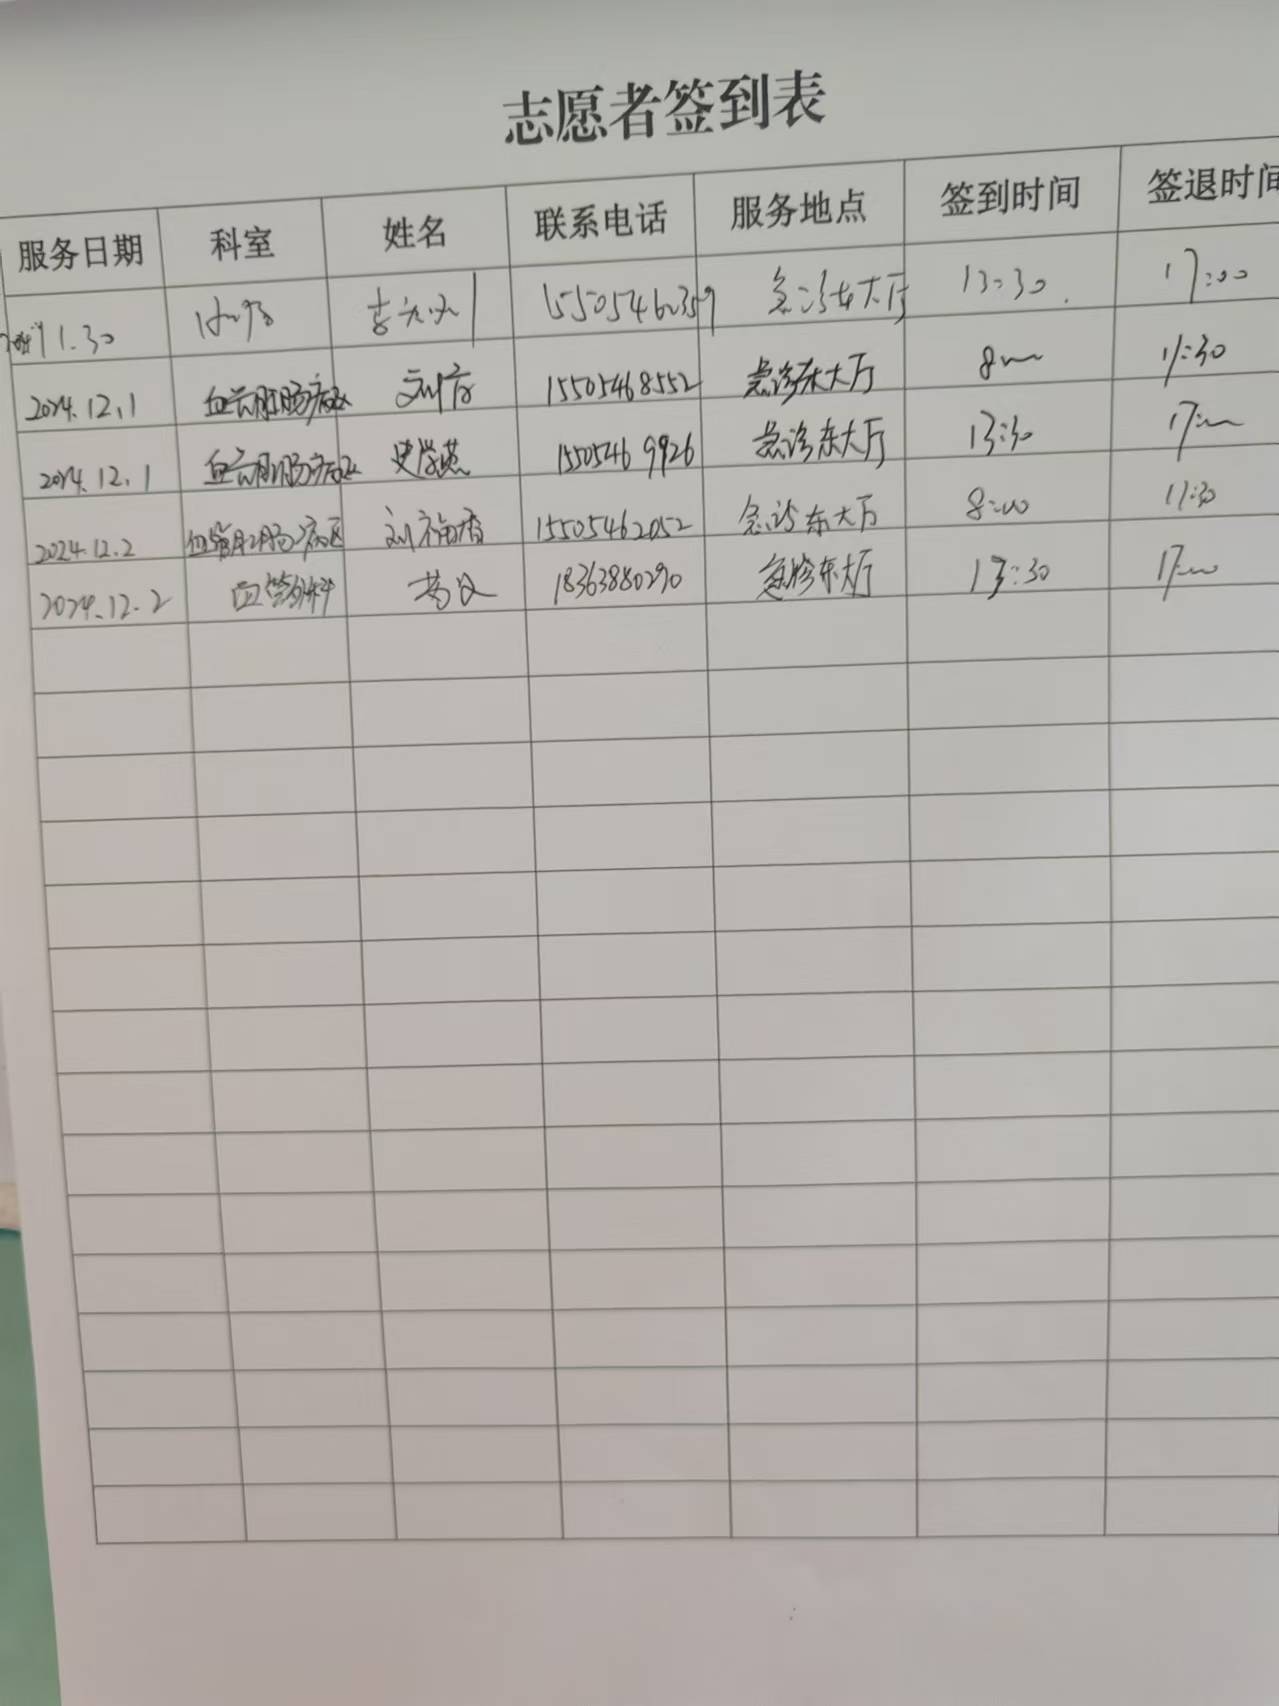 志愿者签到表
服务日期 科室 姓名 联系电话 服务地点 签到时间 签退时间
11.30 15505462359 急诊东大厅 13:30 17:00
2024.12.1 肛肠病区 15505468552 急诊东大厅 8 11:30
2024.12.1 肛肠病区 史学燕 15505469926 急诊东大厅 13:30 17:
2024.12.2 血管肛肠病区 刘福香 15505462052 急诊东大厅 8:00 11:30
2024.12.2 血管外科 18363880290 急诊东大厅 13:30 17: